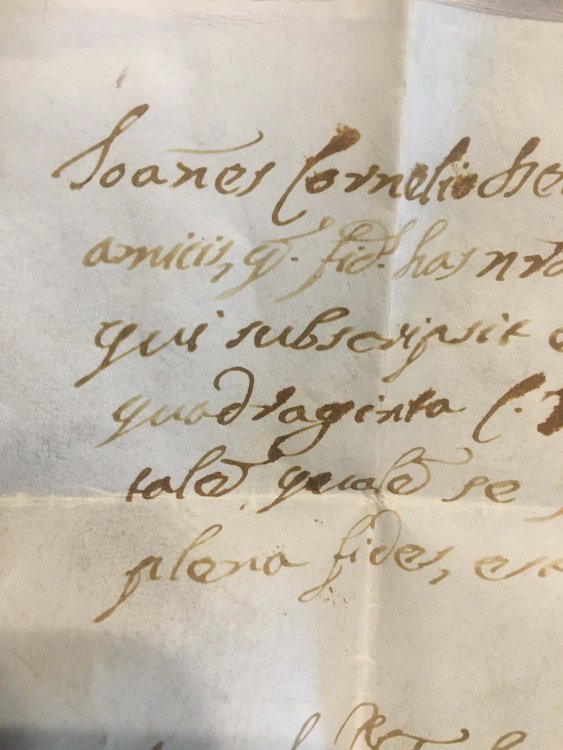 Joan̄es Cornelio dei
amicis, q̃. fid. has nr̃a
qui subscripsit e
quadraginta (.
talẽ, qualẽ se
plena fides, et